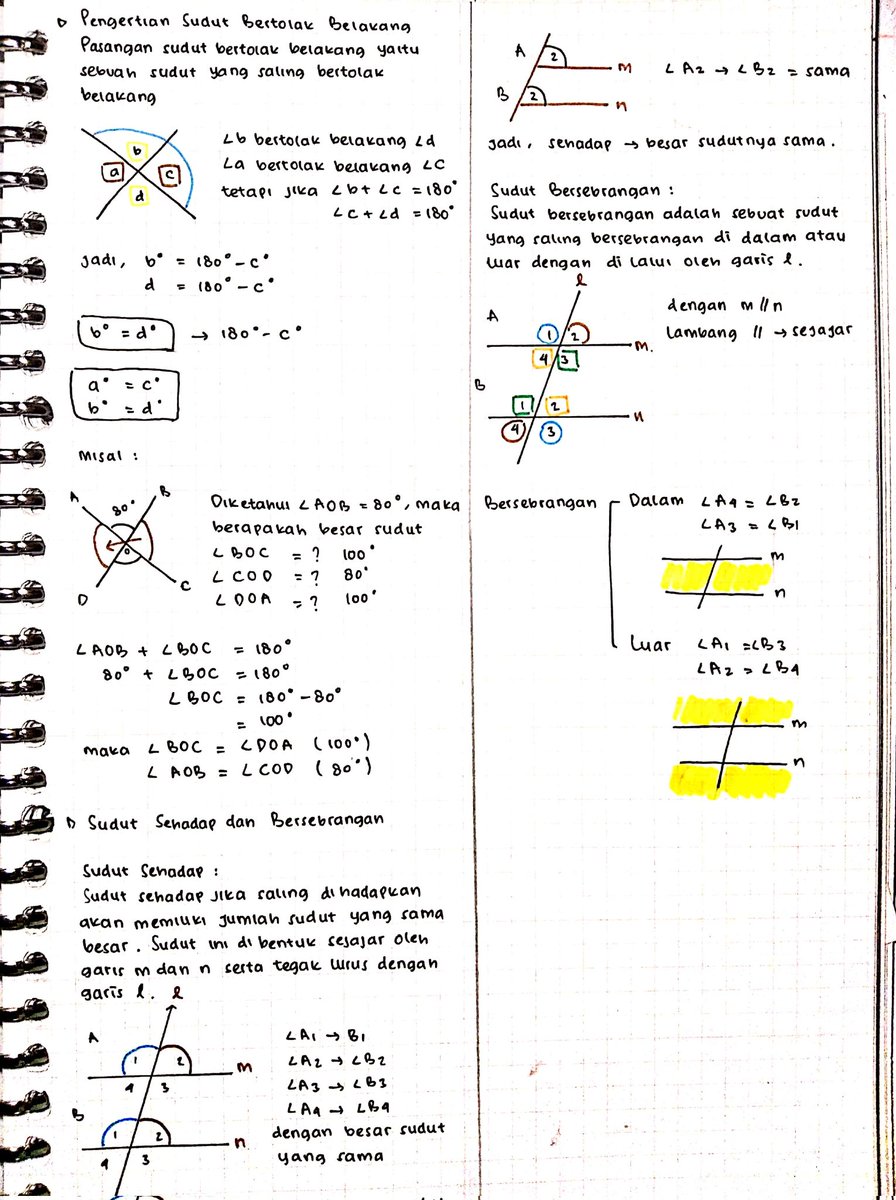 Pengertian Sudut Bertolak Belakang
Pasangan sudut bertolak belakang yaitu
sebuah sudut yang saling bertolak
belakang
b
a
c
d
∠b bertolak belakang ∠d
∠a bertolak belakang ∠c
tetapi jika ∠b + ∠c = 180°
∠c + ∠d = 180°
Jadi, b° = 180° - c°
d = 180° - c°
b° = d° → 180° - c°
a° = c°
b° = d°
Misal :
A
80°
B
O
D
C
Diketahui ∠AOB = 80°, maka
berapakah besar sudut
∠BOC = ? 100°
∠COD = ? 80°
∠DOA = ? 100°
∠AOB + ∠BOC = 180°
80° + ∠BOC = 180°
∠BOC = 180° - 80°
= 100°
maka ∠BOC = ∠DOA (100°)
∠AOB = ∠COD (80°)
Sudut Sehadap dan Bersebrangan
Sudut Sehadap :
Sudut sehadap jika saling dihadapkan
akan memiliki jumlah sudut yang sama
besar. Sudut ini di bentuk sejajar oleh
garis m dan n serta tegak lurus dengan
garis l.
l
A
1 2
m
4 3
B
1 2
n
4 3
∠A1 → B1
∠A2 → ∠B2
∠A3 → ∠B3
∠A4 → ∠B4
dengan besar sudut
yang sama
A
2
m
B
2
n
∠A2 → ∠B2 = sama
Jadi, sehadap → besar sudutnya sama.
Sudut Bersebrangan :
Sudut bersebrangan adalah sebuat sudut
yang saling bersebrangan di dalam atau
luar dengan di lalui oleh garis l.
l
A
1 2
m.
4 3
B
1 2
n
4 3
dengan m // n
Lambang // → sejajar
Bersebrangan
Dalam ∠A4 = ∠B2
∠A3 = ∠B1
m
n
Luar ∠A1 = ∠B3
∠A2 = ∠B4
m
n